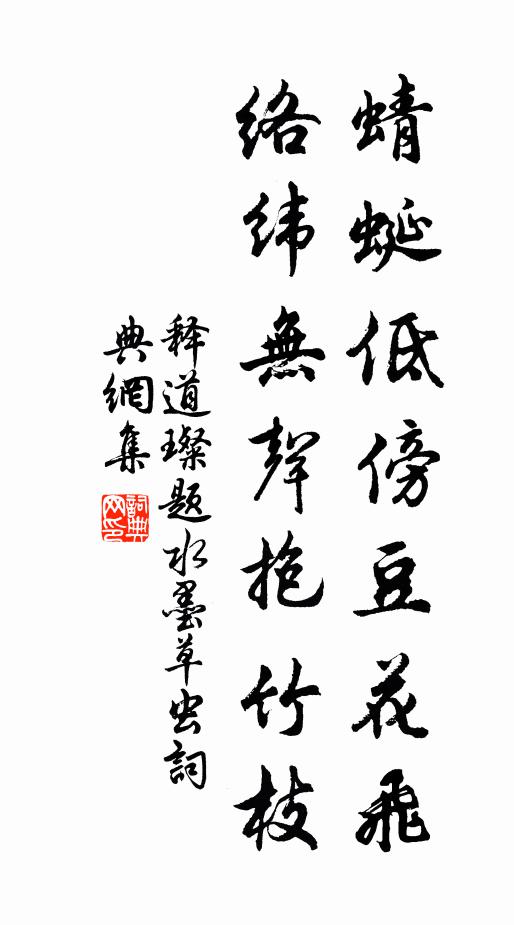 蜻蜓低傍豆花飛
絡緯無聲抱竹枝
释道璨题水墨草虫詞
典網集
詞典網印